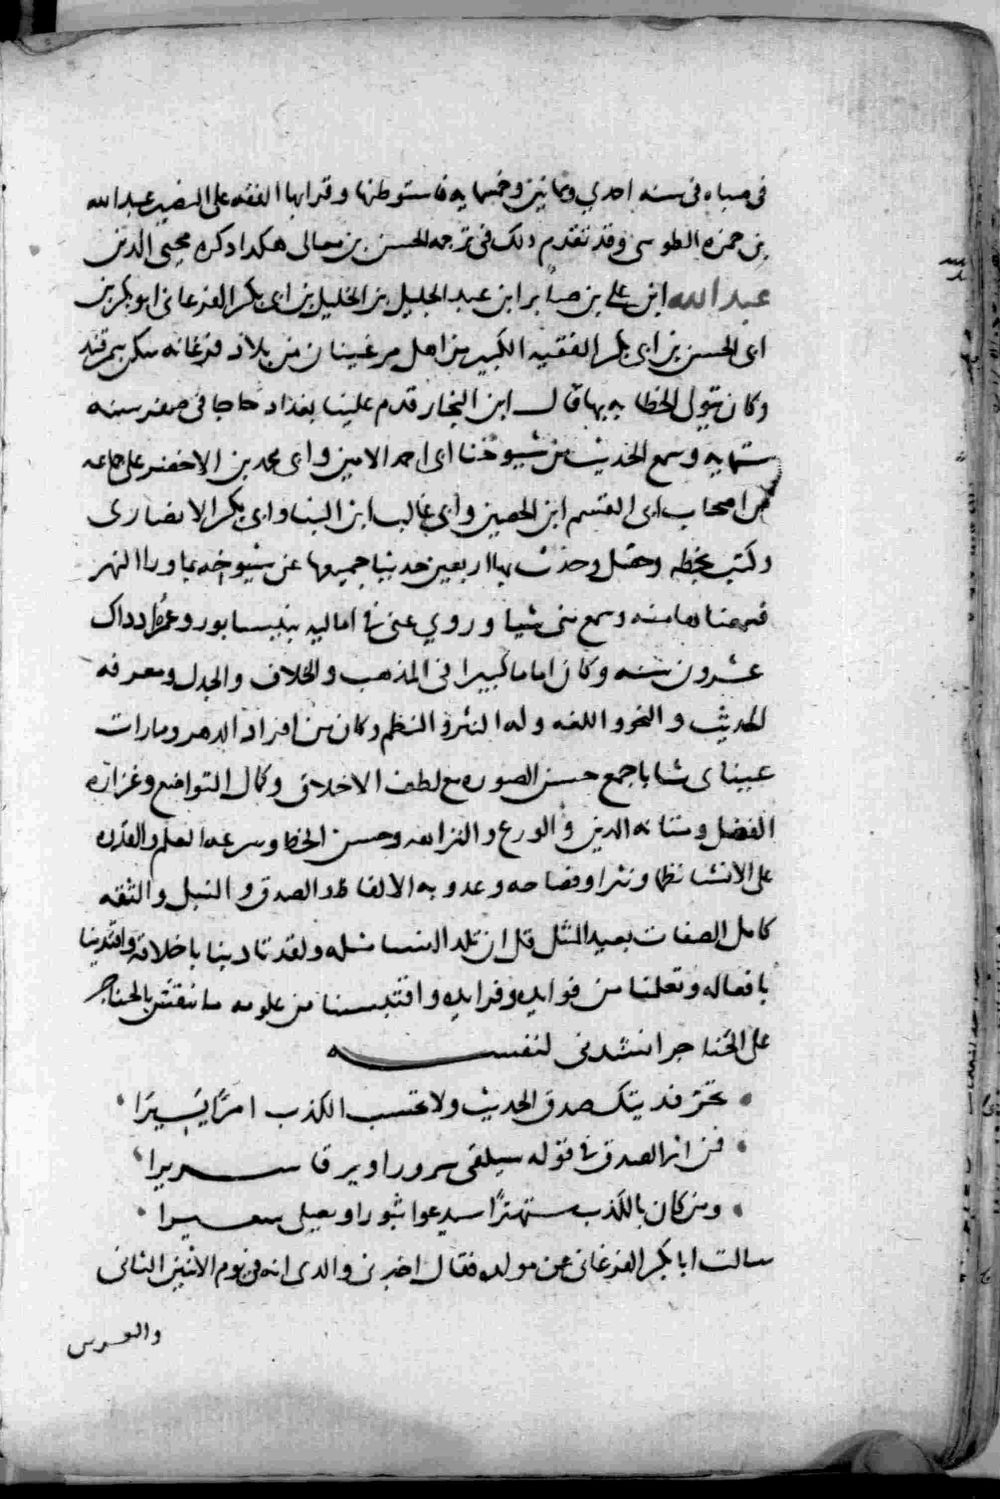 فى صباه فى سنه احدي وثمانين وخمسمايه فاستوطنها وقرابها الفقه على النصير عبدالله
بن حمزه الطوسى وقد تقدم ذلك فى ترجمه الحسن بن معالى هكذا ذكره محيى الدين
عبد الله ابن على بن صابر ابن عبد الجليل بن الخليل بن ابى بكر الفرغانى ابو بكر بن
ابى الحسن بن ابى بكر الفقيه الكبير من اهل مرغينان من بلاد فرغانه سكن سمرقند
وكان يتولى الخطابه بها قال ابن النجار قدم علينا بغداد حاجا فى صفر سنه
ستمايه وسمع الحديث من شيوخنا ابى احمد الامين وابى محمد بن الاخضر على جماعه
من اصحاب ابى القسم ابن الحصين وابى غالب ابن البنا وابى بكر الانصارى
وكتب بخطه وحصل وحدث بها اربعين حديثا جمعها عن شيوخه بما ورا النهر
فسمعناها منه وسمع منى شيا وروي عنى فى اماليه بنيسابور وعمره اذ ذاك
عشرون سنه وكان اماما كبيرا فى المذهب والخلاف والجدل ومعرفه
الحديث والنحو واللغه وله النثر والنظم وكان من افراد الدهر وما رات
عيناى شابا جمع حسن الصوره مع لطف الاخلاق وكمال التواضع وغزاره
الفضل ومتانه الدين والورع والنزاهه وحسن الخط وسرعه القلم والقدره
على الانشا نظما ونثرا وفصاحه وعذوبه الالفاظ والصدق والنبل والثقه
كامل الصفات بعيد المثل قل ان تلد النسا مثله ولقد تادبنا باخلاقه واقتدينا
بافعاله وتعلمنا من فوايده وفرايده واقتبسنا من علومه ما ننقش بالخناجر
على الحناجر انشدنى لنفسه
تحر فديتك صدق الحديث ولا تحسب الكذب امرًا يَسِيرَا
فمن اثر الصدق فى قوله سيلقى سرورا ويرقا سريرا
ومن كان بالكذب مستهترًا سيدعوا ثبورا ويصلى سعيرا
سالت ابا بكر الفرغانى عن مولده فقال اخبرنى والدى انه فى يوم الاثنين الثانى